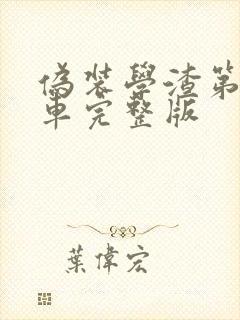 偽裝學渣第
車完整版
葉偉宏